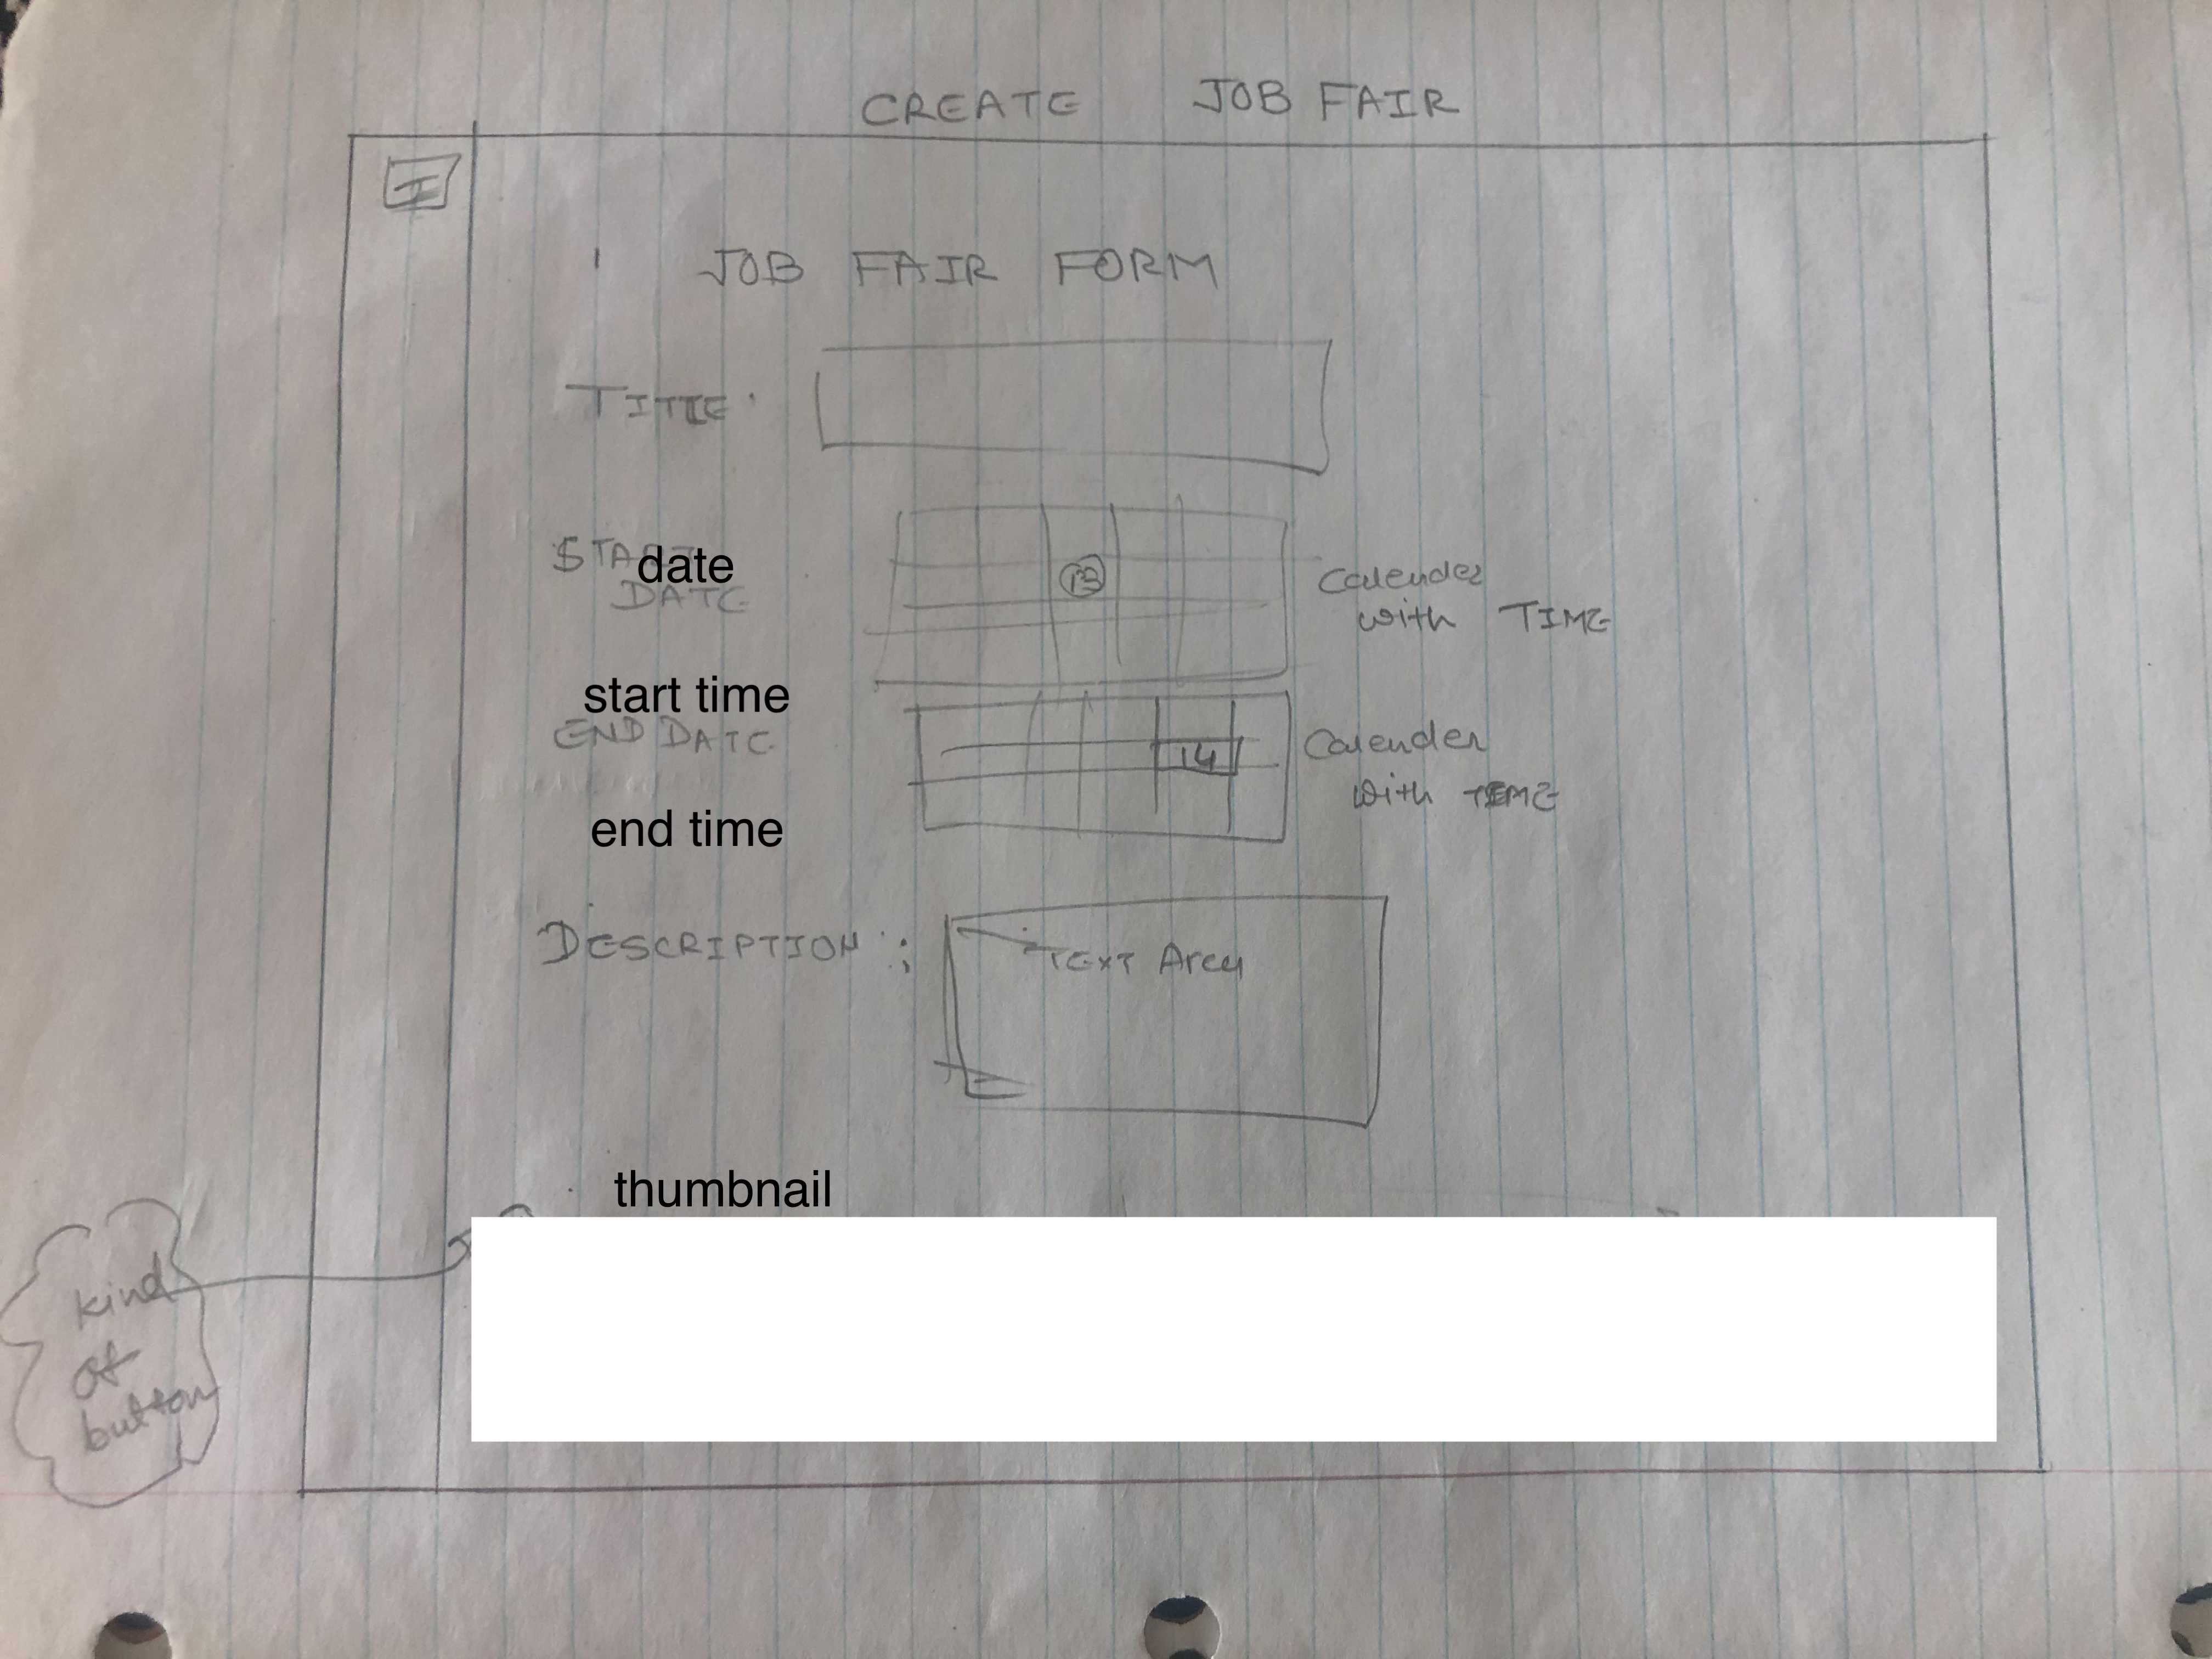 CREATE JOB FAIR
I
JOB FAIR FORM
TITLE:
START
date
DATE
13
Calender
with TIME
start time
END DATE
14
Calender
with TIME
end time
DESCRIPTION :
TEXT Area
thumbnail
kind
of
button